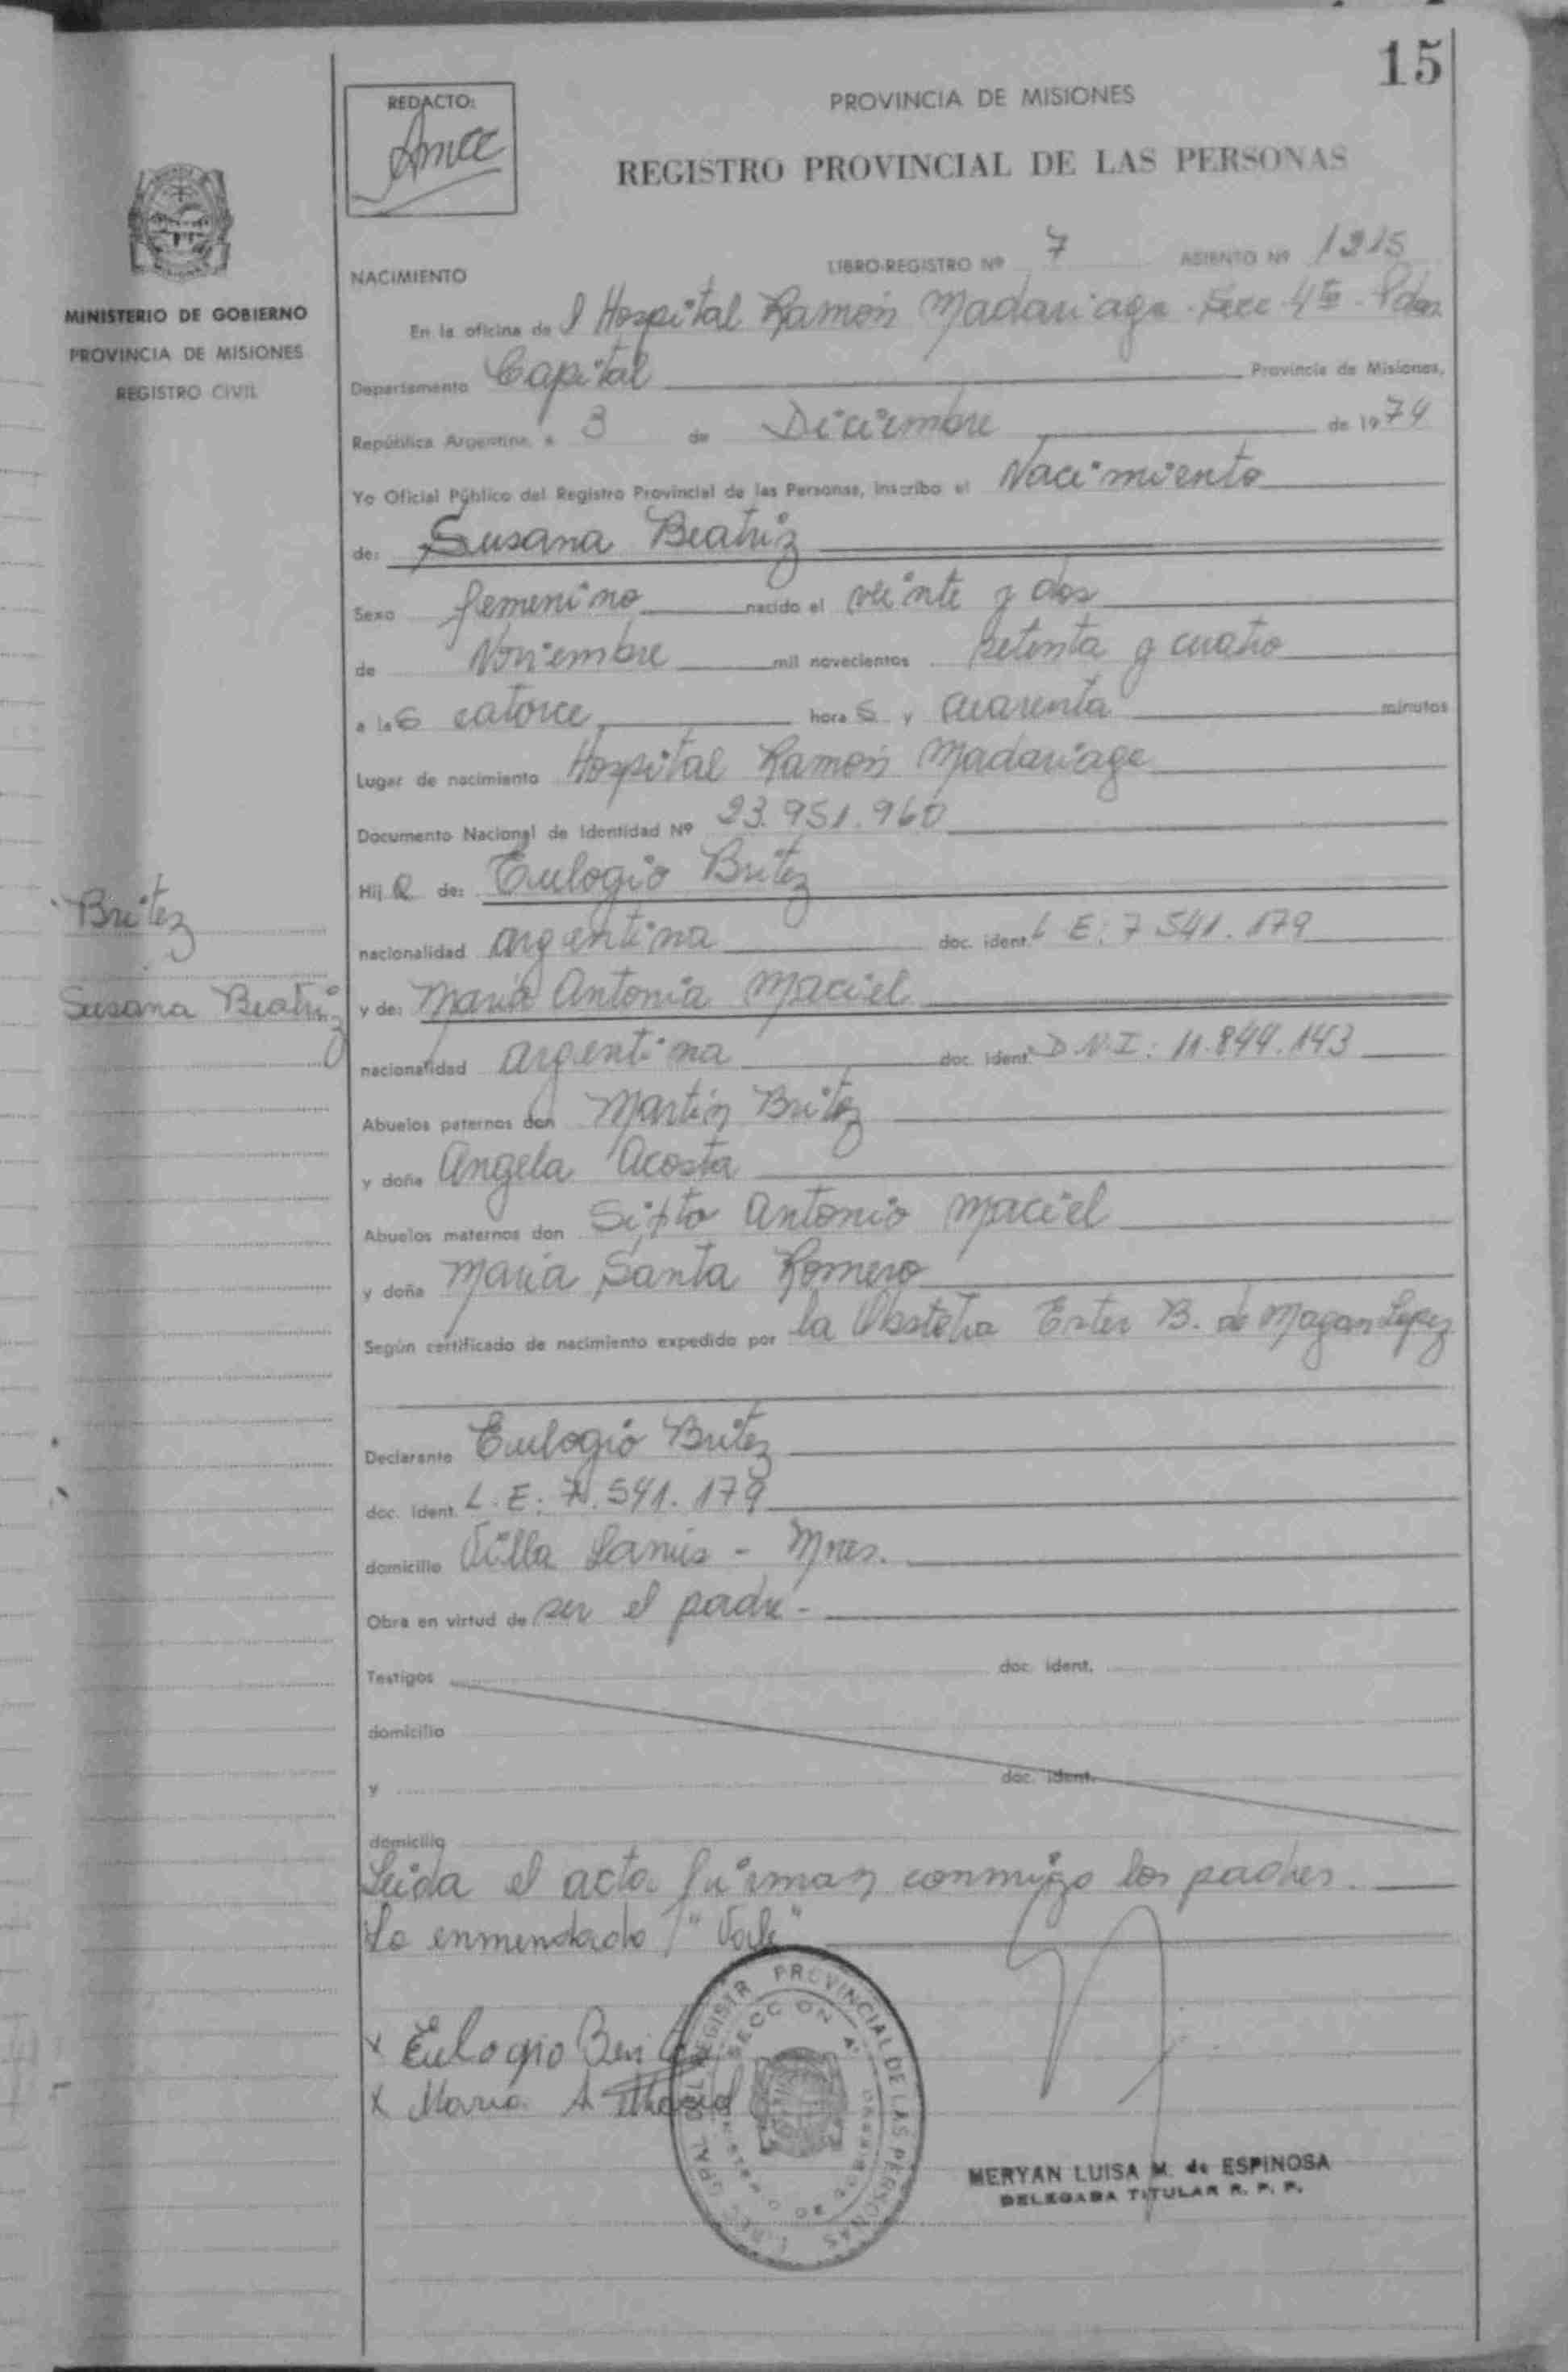 15
REDACTO:
PROVINCIA DE MISIONES
REGISTRO PROVINCIAL DE LAS PERSONAS
MINISTERIO DE GOBIERNO
PROVINCIA DE MISIONES
REGISTRO CIVIL
NACIMIENTO LIBRO-REGISTRO Nº 7 ASIENTO Nº 1215
En la oficina de l Hospital Ramón Madariaga. Secc 4ta. Pdas
Departamento Capital Provincia de Misiones,
República Argentina, a 3 de Diciembre de 1974
Yo Oficial Público del Registro Provincial de las Personas, inscribo el Nacimiento
de: Susana Beatriz
Sexo femenino nacido el veinte y dos
de Noviembre mil novecientos setenta y cuatro
a las catorce horas y cuarenta minutos
Lugar de nacimiento Hospital Ramón Madariaga
Documento Nacional de Identidad Nº 23.951.960
Hija de: Eulogio Britez
nacionalidad argentina doc. ident. L E: 7.541.179
y de: María Antonia Maciel
nacionalidad argentina doc. ident. D.N.I: 11.844.143
Britez
Susana Beatriz
Abuelos paternos don Martín Britez
y doña Angela Acosta
Abuelos maternos don Sixto Antonio Maciel
y doña María Santa Romero
Según certificado de nacimiento expedido por la Obstetra Ester B. de Magan Lopez
Declarante Eulogio Britez
doc. ident. L.E: 7.541.179
domicilio Villa Lanús - Mnes.
Obra en virtud de ser el padre -
Testigos doc. ident.
domicilio
y doc. ident.
domicilio
Leida el acta firman conmigo los padres.
Lo enmendado 7 "Vale"
x Eulogio Britez
x María A Maciel
REGISTR PROVINCIAL DE LAS PERSONAS
SECCION 4ª
MERYAN LUISA M. de ESPINOSA
DELEGADA TITULAR R. P. P.